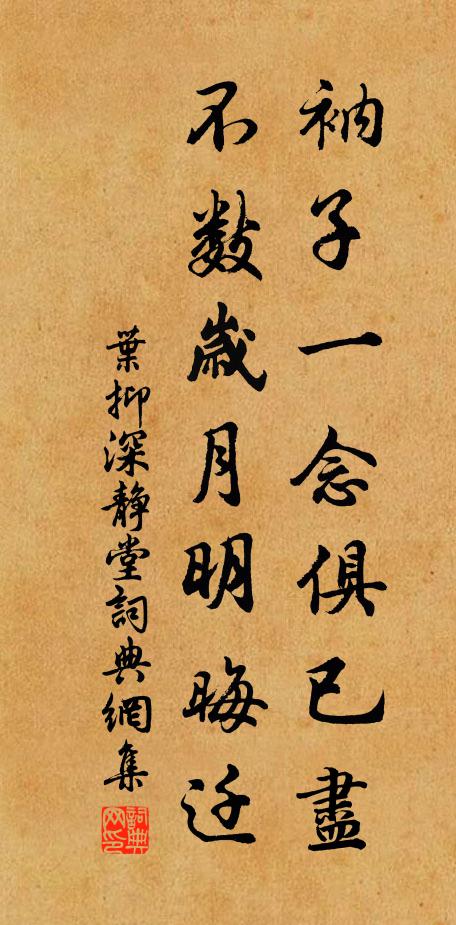 衲子一念俱已盡
不数歲月明晦迁
葉抑深靜堂詞典網集
詞典网印